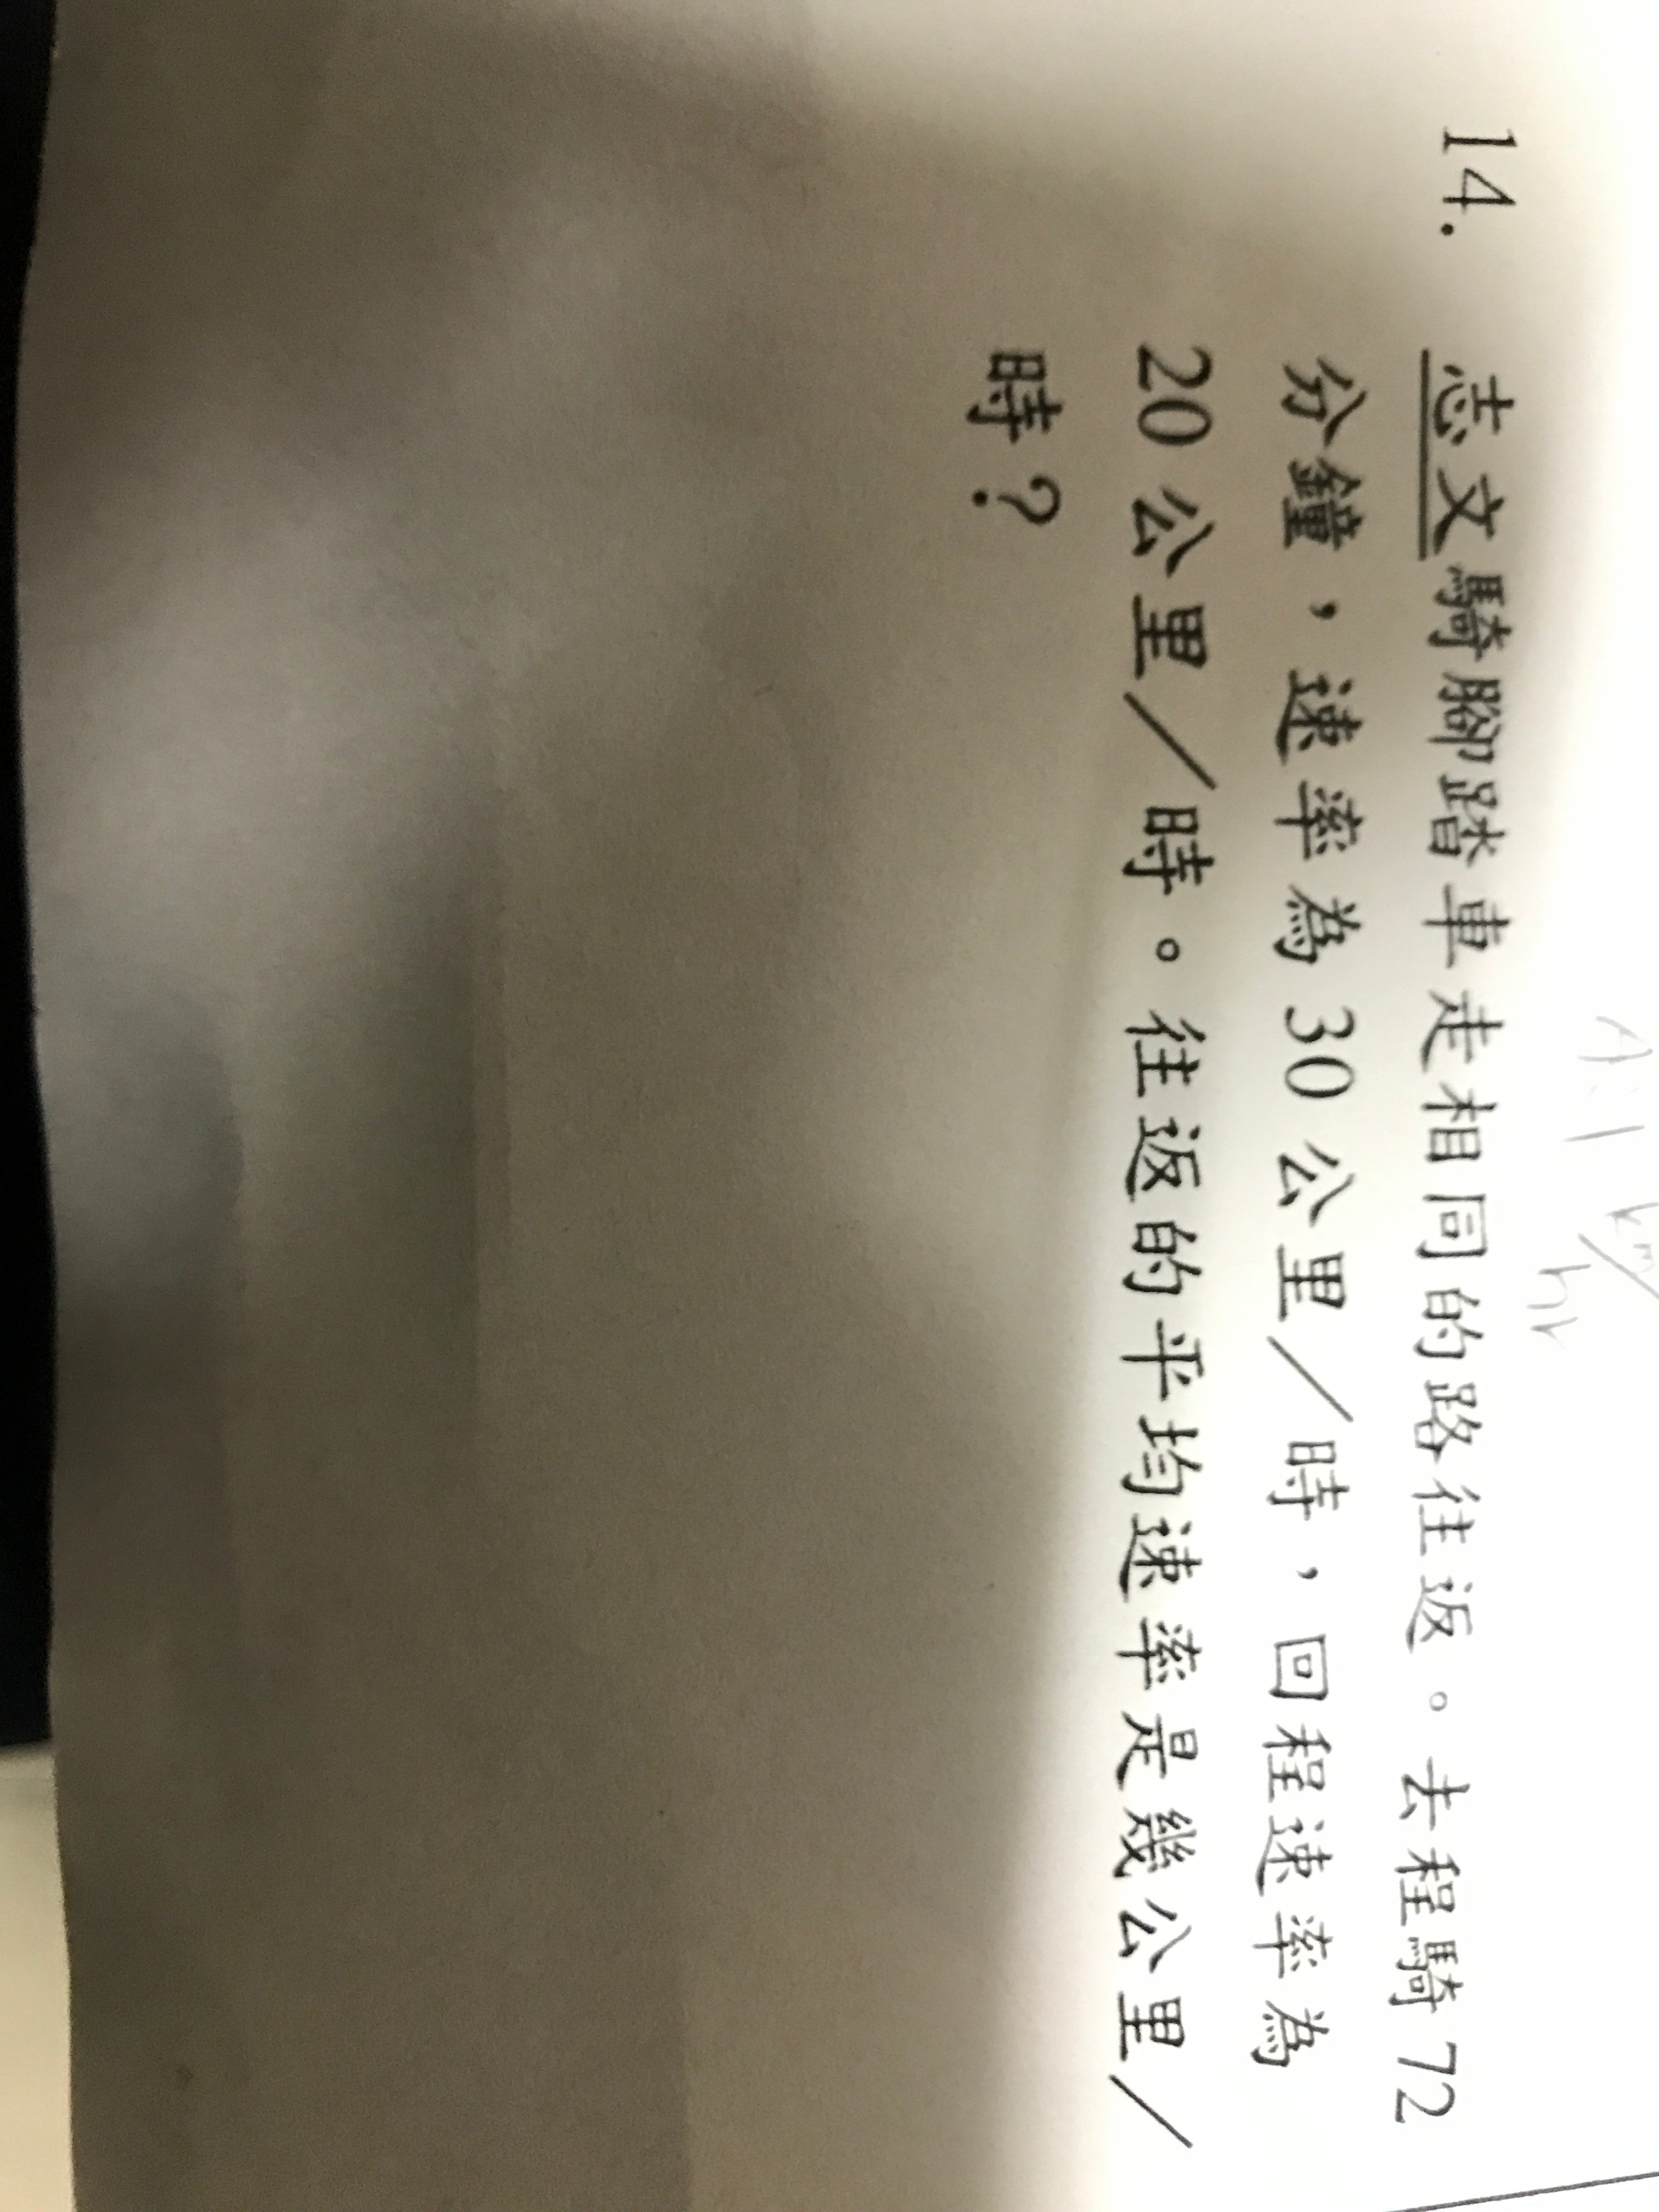 km/hr
14. 志文騎腳踏車走相同的路往返。去程騎 72
分鐘，速率為 30 公里／時，回程速率為
20 公里／時。往返的平均速率是幾公里／
時？